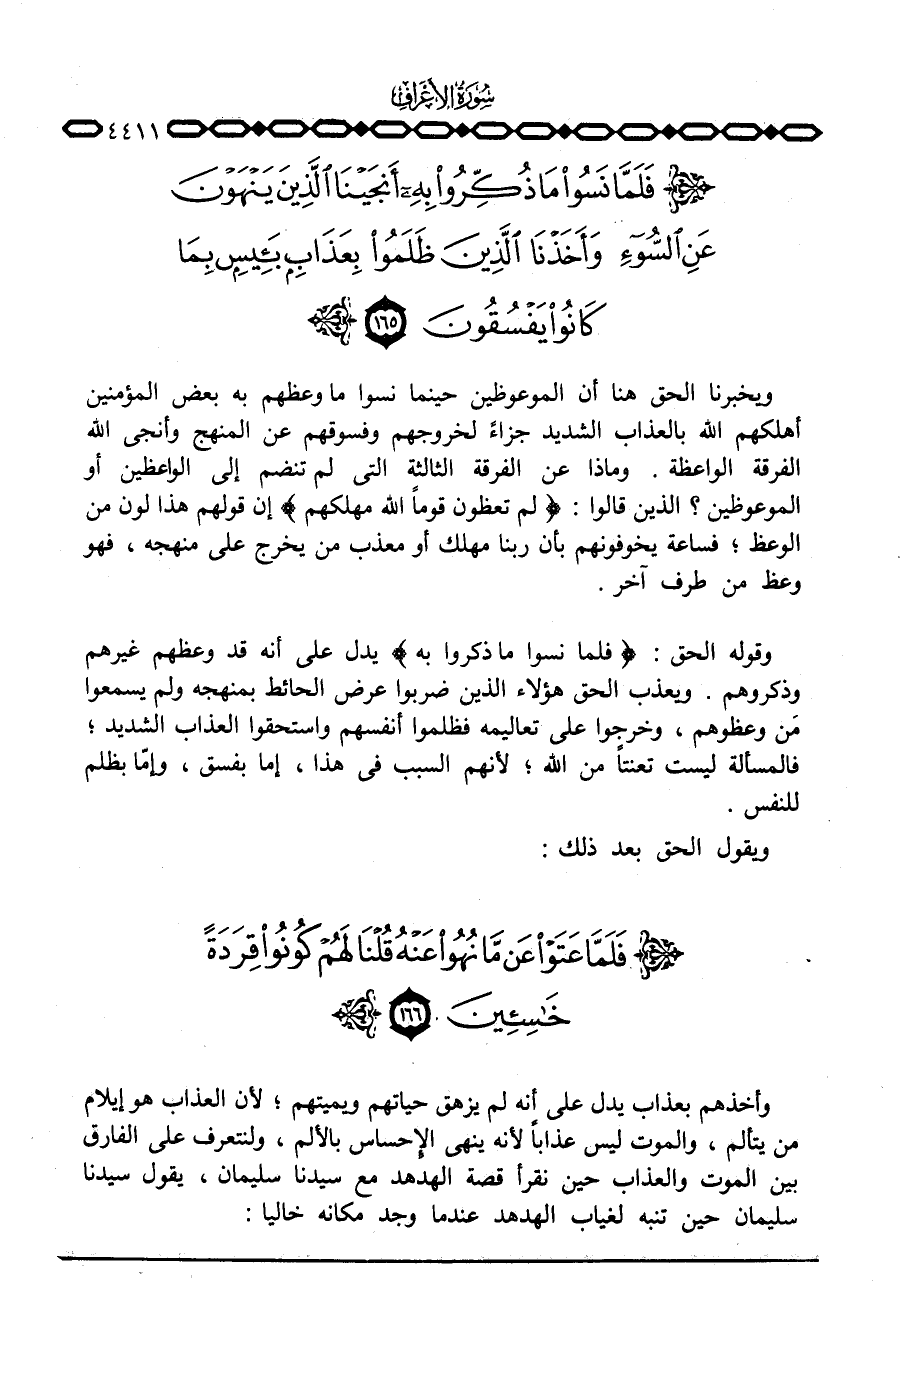 سُورَةُ الأَعْرَافِ
٤٤١١
فَلَمَّا نَسُوا۟ مَا ذُكِّرُوا۟ بِهِۦٓ أَنجَيْنَا ٱلَّذِينَ يَنْهَوْنَ
عَنِ ٱلسُّوٓءِ وَأَخَذْنَا ٱلَّذِينَ ظَلَمُوا۟ بِعَذَابٍۭ بَـِٔيسٍۭ بِمَا
كَانُوا۟ يَفْسُقُونَ ١٦٥
ويخبرنا الحق هنا أن الموعوظين حينما نسوا ما وعظهم به بعض المؤمنين
أهلكهم الله بالعذاب الشديد جزاءً لخروجهم وفسوقهم عن المنهج وأنجى الله
الفرقة الواعظة . وماذا عن الفرقة الثالثة التى لم تنضم إلى الواعظين أو
الموعوظين ؟ الذين قالوا : ﴿ لم تعظون قوماً الله مهلكهم ﴾ إن قولهم هذا لون من
الوعظ ؛ فساعة يخوفونهم بأن ربنا مهلك أو معذب من يخرج على منهجه ، فهو
وعظ من طرف آخر .
وقوله الحق : ﴿ فلما نسوا ما ذكروا به ﴾ يدل على أنه قد وعظهم غيرهم
وذكروهم . ويعذب الحق هؤلاء الذين ضربوا عرض الحائط بمنهجه ولم يسمعوا
مَن وعظوهم ، وخرجوا على تعاليمه فظلموا أنفسهم واستحقوا العذاب الشديد ؛
فالمسألة ليست تعنتاً من الله ؛ لأنهم السبب فى هذا ، إما بفسق ، وإمّا بظلم
للنفس .
ويقول الحق بعد ذلك :
فَلَمَّا عَتَوْا۟ عَن مَّا نُهُوا۟ عَنْهُ قُلْنَا لَهُمْ كُونُوا۟ قِرَدَةً
خَـٰسِـِٔينَ ١٦٦
وأخذهم بعذاب يدل على أنه لم يزهق حياتهم ويميتهم ؛ لأن العذاب هو إيلام
من يتألم ، والموت ليس عذاباً لأنه ينهى الإحساس بالألم ، ولنتعرف على الفارق
بين الموت والعذاب حين نقرأ قصة الهدهد مع سيدنا سليمان ، يقول سيدنا
سليمان حين تنبه لغياب الهدهد عندما وجد مكانه خاليا :